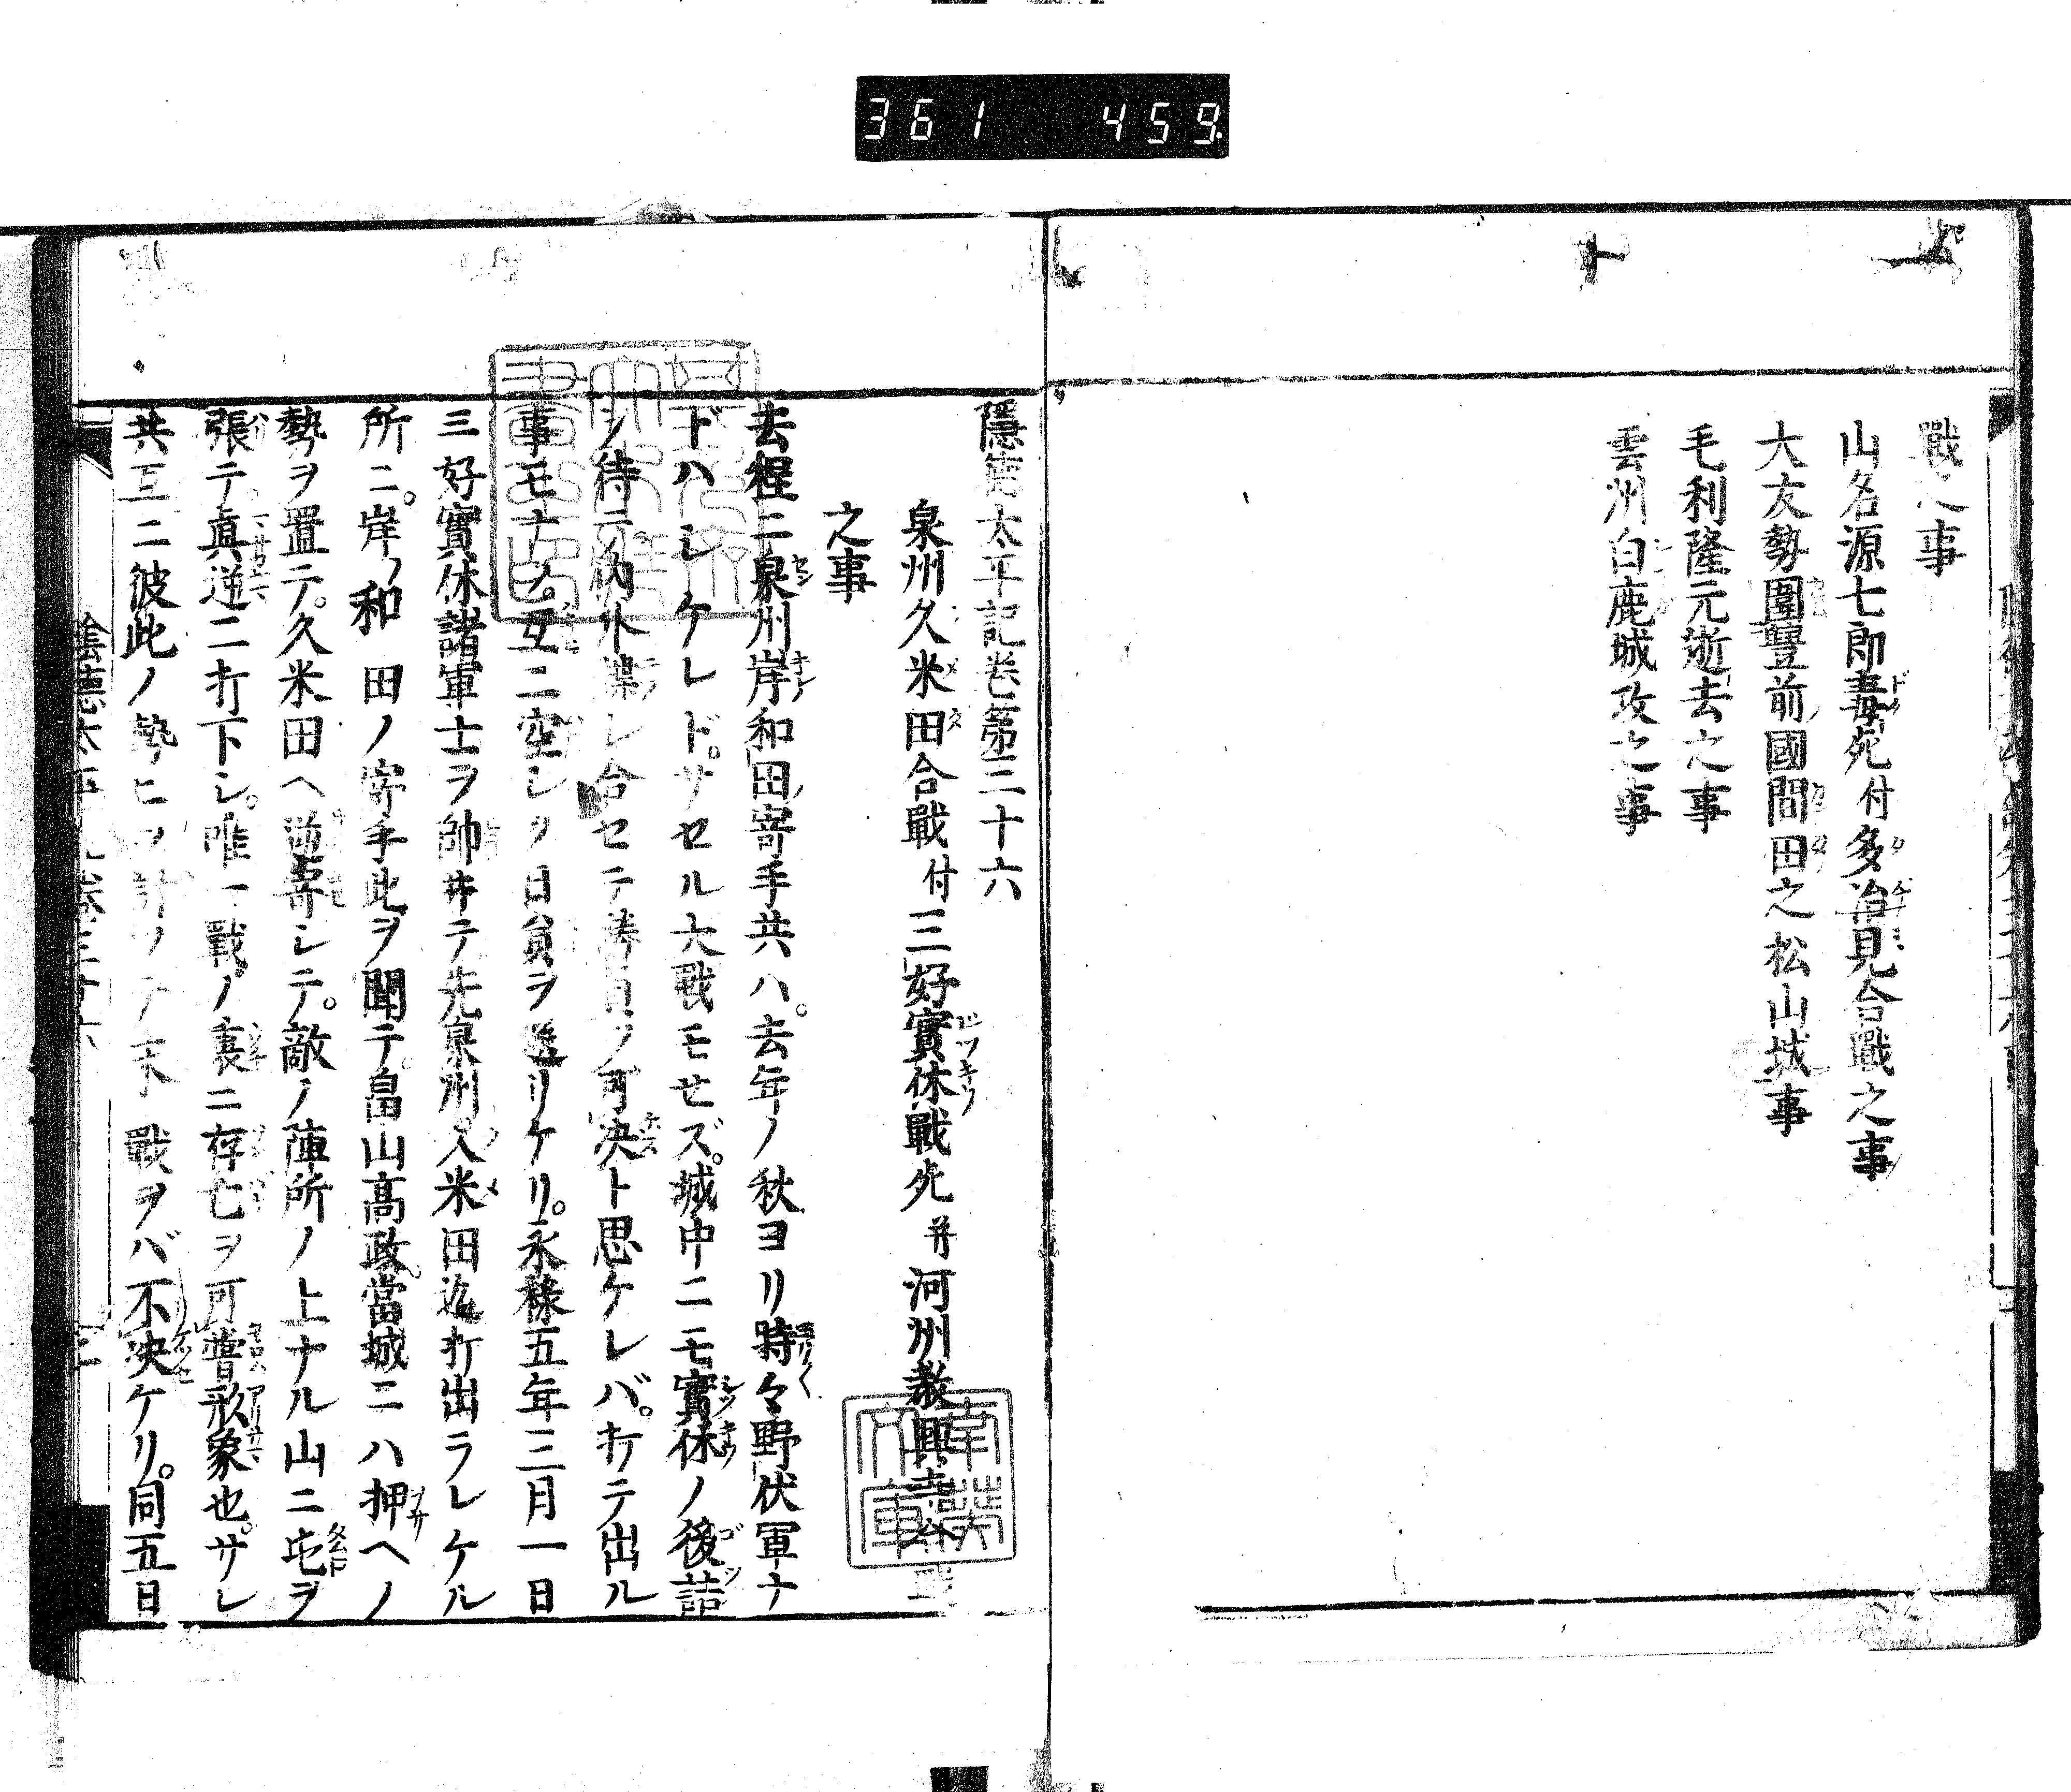 361 459
戰之事
山名源七郎毒死付多治見合戰之事
大友勢圍豐前國間田之松山城事
毛利隆元逝去之事
雲州白鹿城攻之事
陰德太平記卷第三十六
泉州久米田合戰付三好實休戰死并河州教興寺合戰
之事
去程ニ泉州岸和田寄手共ハ。去年ノ秋ヨリ時々野伏軍ナ
ドハシケレドサセル大戰モセズ。城中ニモ實休ノ後詰
ヲ待テ内外牒シ合セテ勝負ヲ可決ト思ケレバ。打テ出ル
事モナク。互ニ空シク日數ヲ送リケリ。永祿五年三月一日
三好實休諸軍士ヲ帥井テ先泉州久米田迄打出ラレケル
所ニ。岸ノ和田ノ寄手此ヲ聞テ。畠山高政當城ニハ押ヘノ
勢ヲ置テ。久米田ヘ逆寄シテ。敵ノ陣所ノ上ナル山ニ屯ヲ
張テ眞逆ニ打下シ。唯一戰ノ裏ニ存亡ヲ可嘗形象也。サレ
共互ニ彼此ノ勢ヒヲ計ツテ未戰ヲバ不決ケリ。同五日
陰德太平記卷三十六